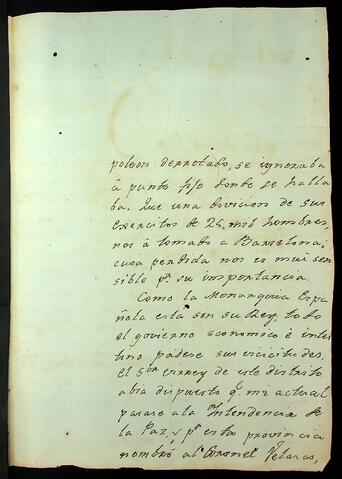 poleon derrotado, se ignoraba
á punto fijo donde se halla
ba. Que una divicion de sus
exercitos de 25 mil hombres,
nos á tomado a Barselona;
cuia perdida nos es mui sen
sible pr. su importancia
Como la Monarquia Espa
ñola está son su Rey, todo
el govierno economico é inte
rino padese sus vicicitudes.
el Sor. virrey de este distrito
abia dispuesto q. mi actual
pasase a la Intendencia de
la Paz, y pa. esta provincia
nombró al Coronel Velasco,